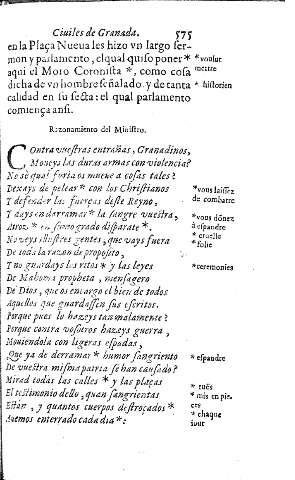 Ciuiles de Granada. 575
en la Plaça Nueua les hizo vn largo ser-
mon y parlamento, el qual quiso poner *
aqui el Moro Coronista *, como cosa
dicha de vn hombre señalado y de tanta
calidad en su secta: el qual parlamento
comiença ansi.
*voulut
mettre
*historien
Razonamiento del Ministro.
COntra vuestras entrañas, Granadinos,
Moueys las duras armas con violencia?
No sè qual furia os mueue a cosas tales?
Dexays de pelear * con los Christianos
Y defender las fuerças deste Reyno,
Y days en derramar * la sangre vuestra,
Atroz * en sumo grado disparate *.
No veys illustres gentes, que vays fuera
De toda la razon de proposito,
Y no guardays los ritos * y las leyes
De Mahoma propheta, mensagero
De Dios, que os encargo el bien de todos
Aquellos que guardassen sus escritos.
Porque pues lo hazeys tan malamente?
Porque contra vosotros hazeys guerra,
Mouiendola con ligeras espadas,
Que ya de derramar * humor sangriento
De vuestra misma patria se han causado?
Mirad todas las calles * y las plaças
El testimonio dello, quan sangrientas
Estàn, y quantos cuerpos destroçados *
Auemos enterrado cada dia *:
*vous laissez
de combatre
*vous dónez
à espandre
* cruelle
* folie
*ceremonies
*espandre
* ruës
* mis en pie-
ces
* chaque
iour